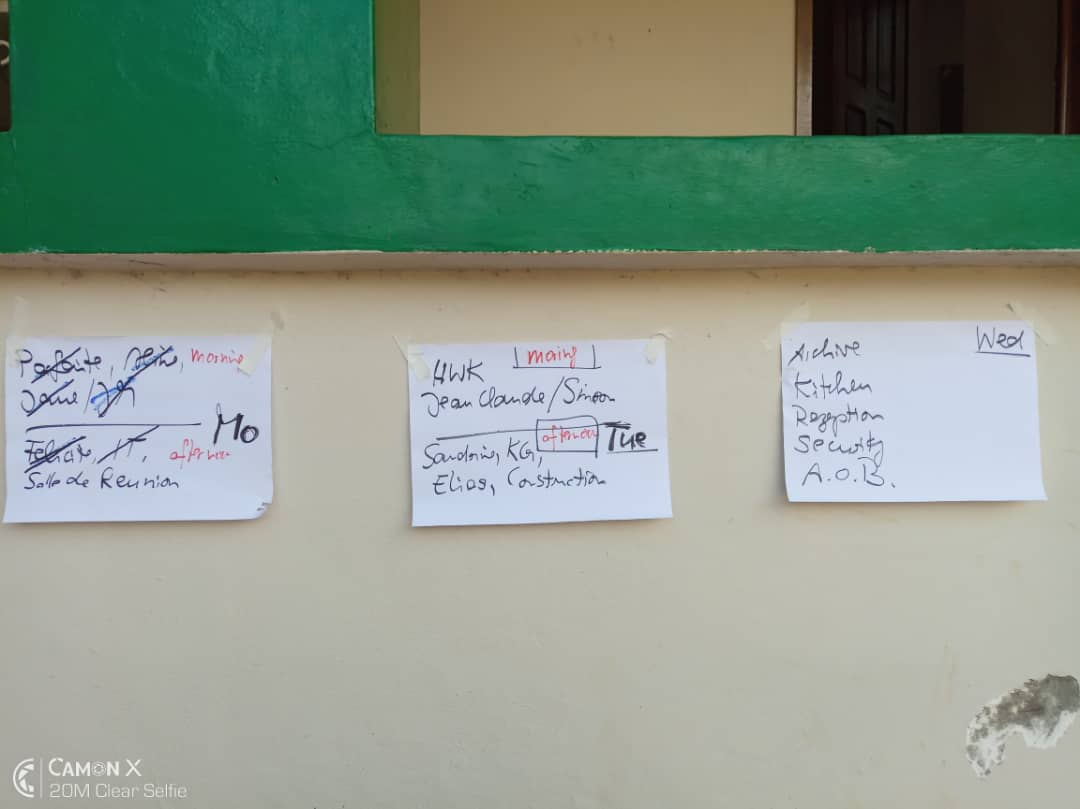 Parfaite, Aline, morning
Mo
afternoon
Salle de Reunion
HWK
Jean Claude/Simon
afternoon
Tue
KG,
Elias, Construction
Wed
Archive
Kitchen
Rezeption
Security
A.O.B.
CAMON X
20M Clear Selfie